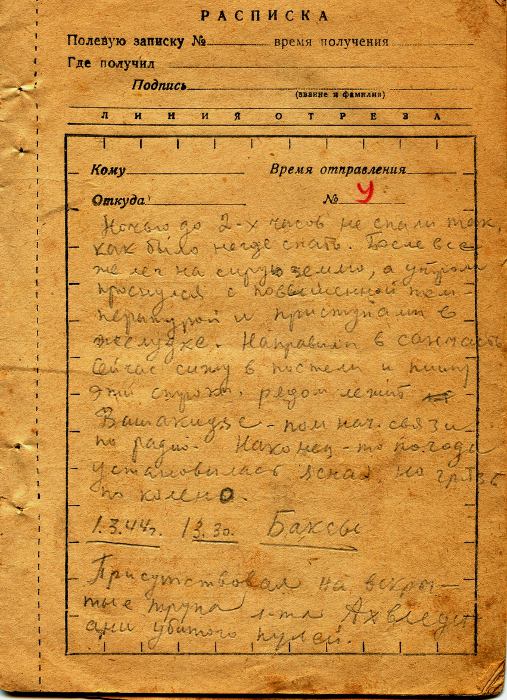 РАСПИСКА
Полевую записку № время получения
Где получил
Подпись
(звание и фамилия)
ЛИНИЯ ОТРЕЗА
Кому Время отправления
Откуда № 4
Ночью до 2-х часов не спали так,
как было негде спать. После все
же лег на сырую землю, а утром
проснулся с повышенной тем-
пературой и приступами в
желудке. Направили в санчасть
Сейчас сижу в постели и пишу
эти строки, рядом лежит
Вашакидзе - пом нач. связи
по радио. Наконец-то погода
установилась ясная, но грязь
по колено.
1.3.44г. 13.30. Баксы
Присутствовал на вскры-
тые трупа л-та Ахвледи
ани убитого пулей.